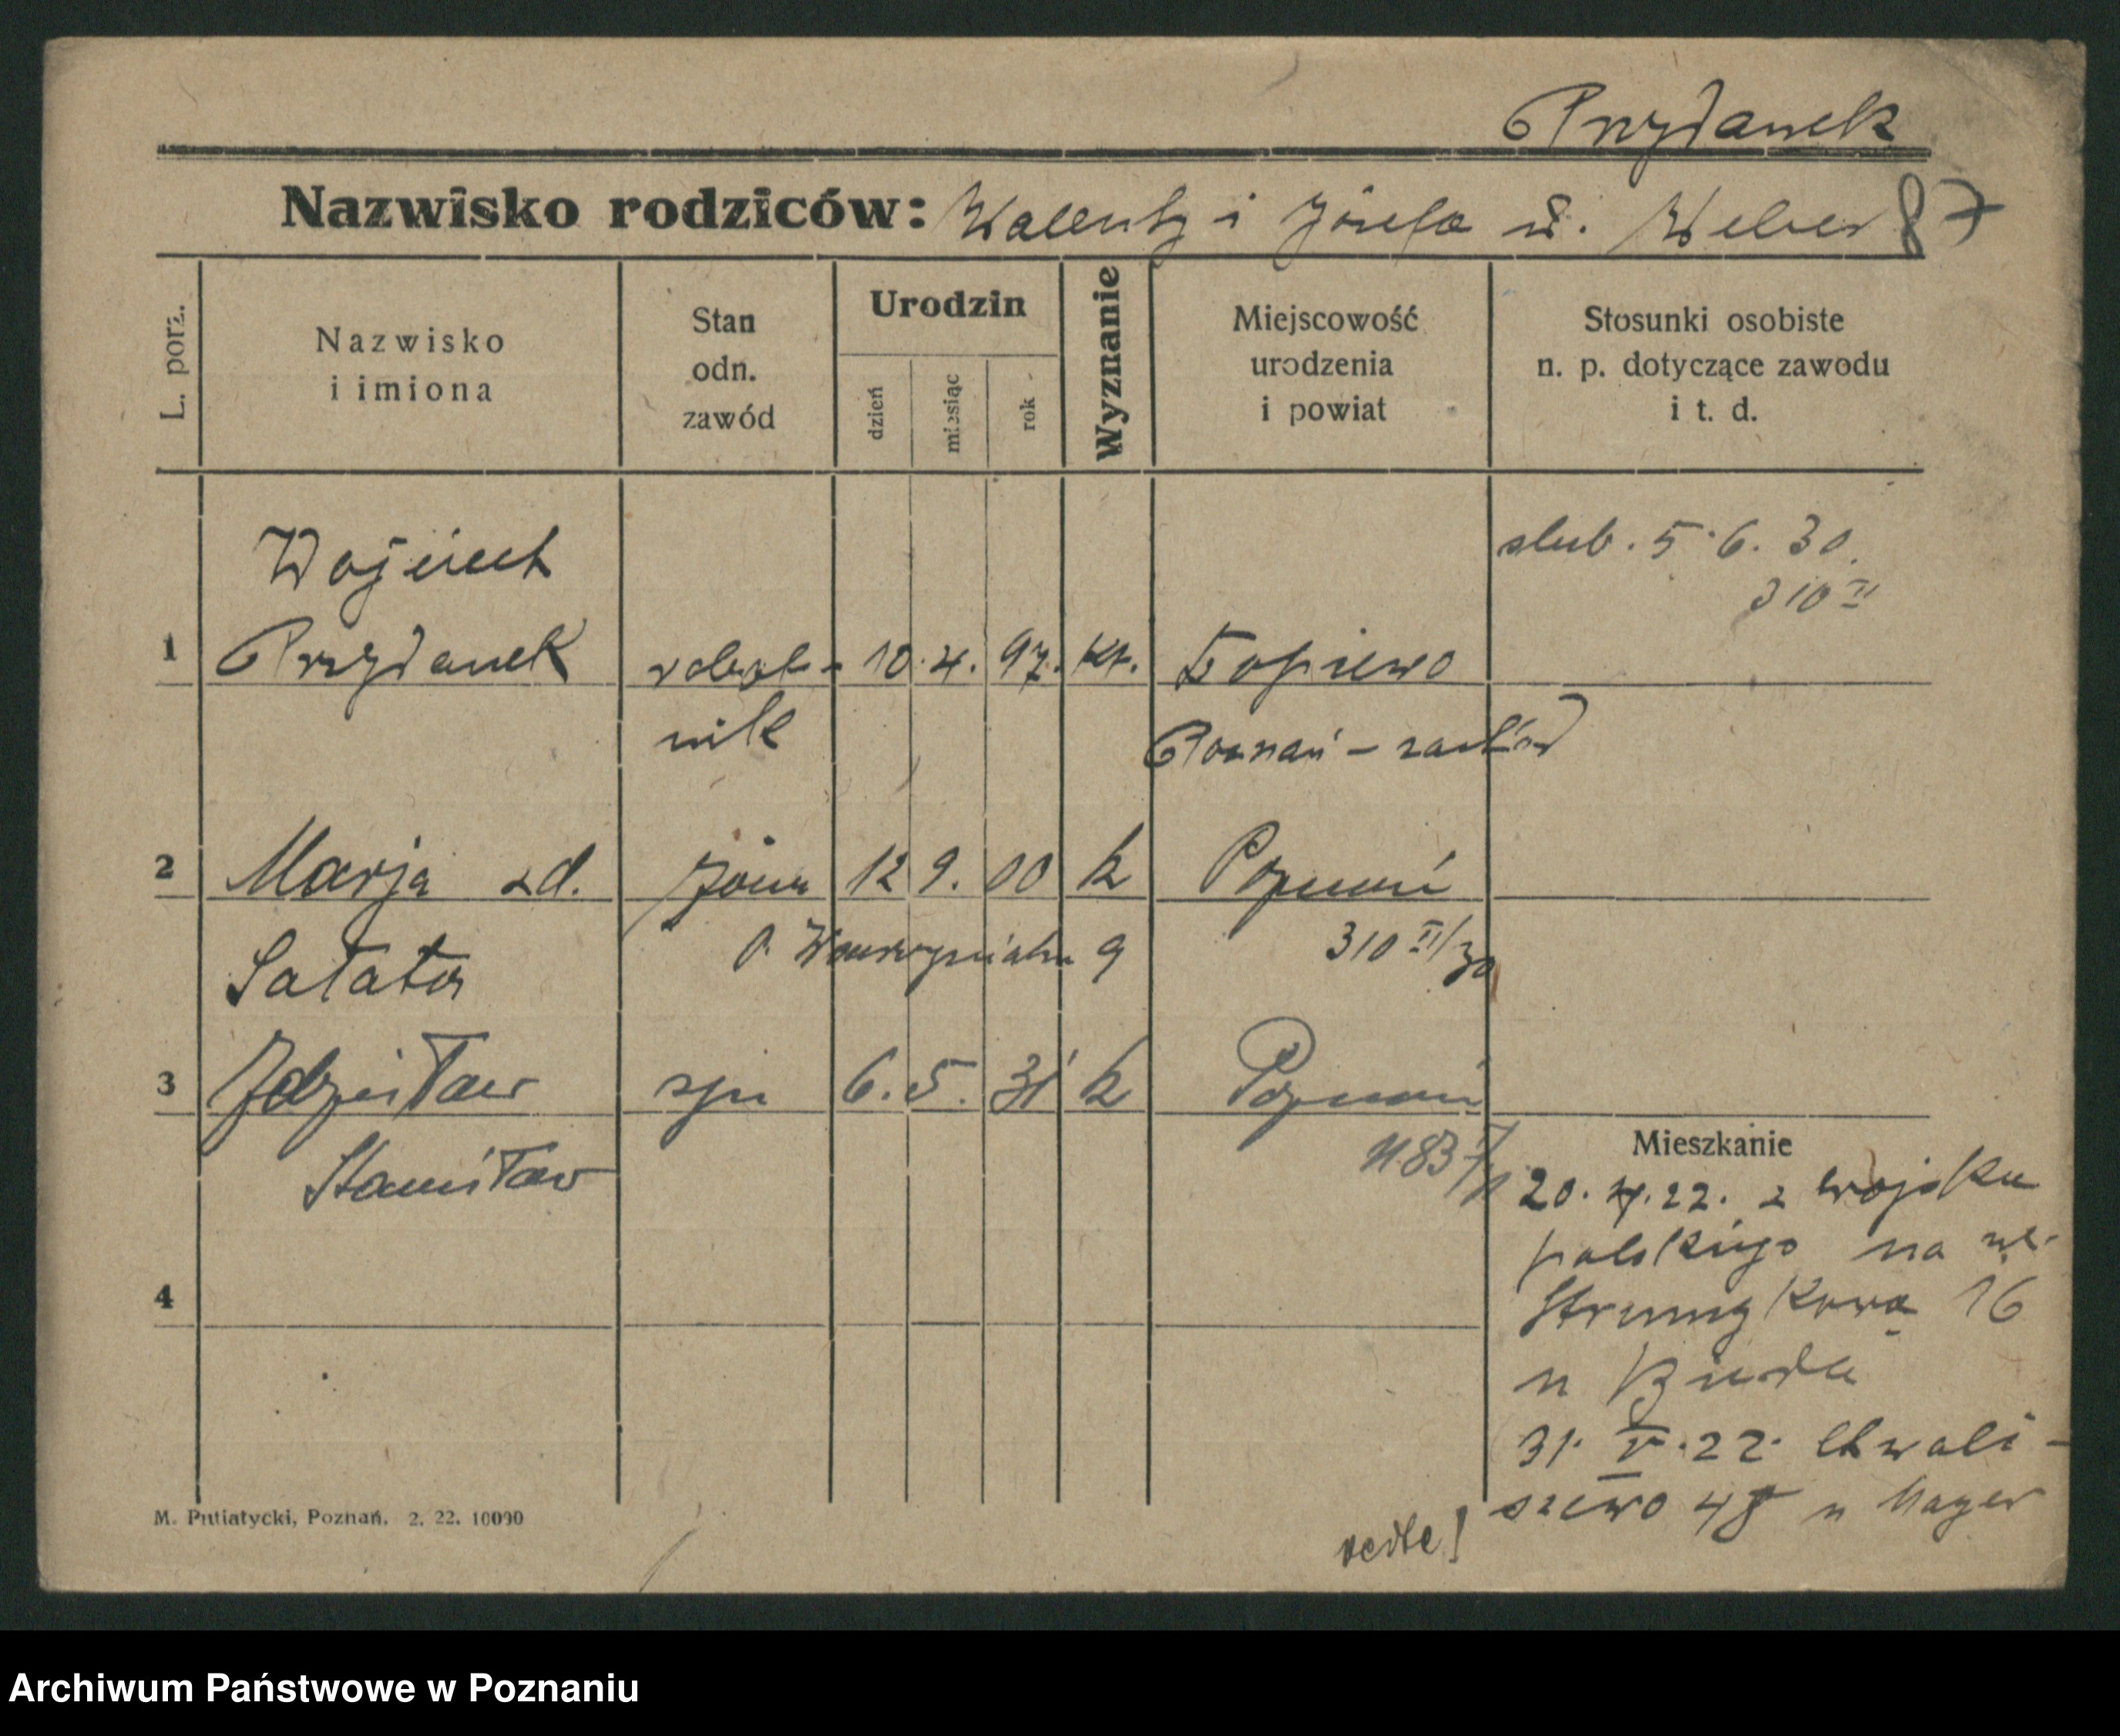 Przydanek
Nazwisko rodziców: Walenty i Józefa ur. Weber 87
L. porz.
Nazwisko
i imiona
Stan
odn.
zawód
Urodzin
dzień
miesiąc
rok
Wyznanie
Miejscowość
urodzenia
i powiat
Stosunki osobiste
n. p. dotyczące zawodu
i t. d.
Wojciech
ślub. 5.6.30.
310 II
1 Przydanek robot- 10. 4. 97. kt. Łopiewo
nik Poznań - zachód
2 Marja zd. żona 12 9. 00 k Poznań
Sałata O. Wawrzyniaka 9 310 II/30
3 Zdzisław syn 6. 5. 31 k Poznań
Stanisław
Mieszkanie
20. 22. z wojska
polskiego na ul.
Strumykowa 16
u
31. V. 22. Chwali-
4
szewo 48 u Mayer
M. Putiatycki, Poznań. 2. 22. 10000
Archiwum Państwowe w Poznaniu